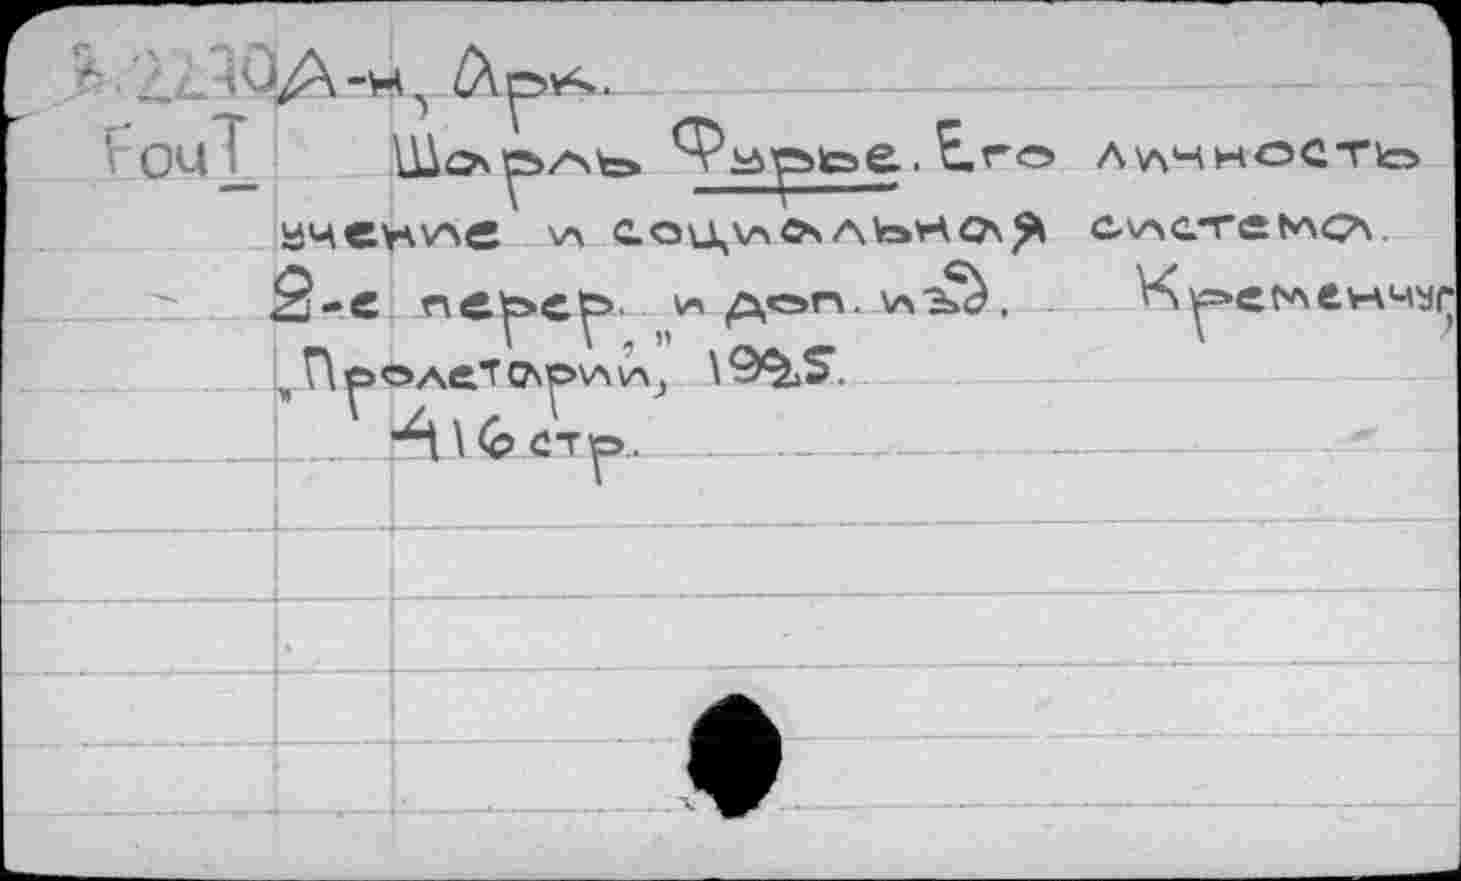 А-н, Арк.
FouT Шарль Фурье. Его личность
учение и социальная система.
2-е перер. и доп. изд. Кременчуг,
„Пролетарий", 1925.
416 стр.